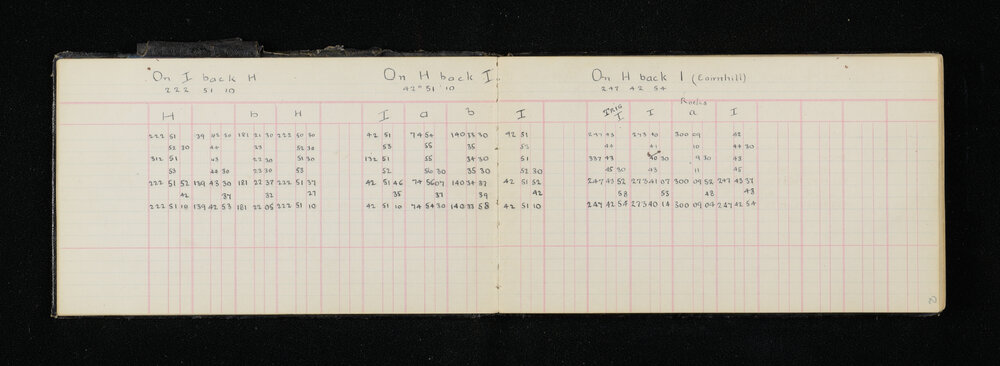 On I back H
222 51 10
H b H
222 51 39 42 30 181 21 30 222 50 50
52 30 44 23 52 30
312 51 43 22 30 51 30
53 44 30 23 30 53
222 51 52 139 43 30 181 22 37 222 51 37
42 37 32 27
222 51 10 139 42 53 181 22 05 222 51 10
On H back I
42° 51 10
I a b I
42 51 74 54 140 33 30 42 51
53 55 35 53
132 51 55 34 30 51
52 56 30 35 30 52 30
42 51 46 74 56 07 140 34 37 42 51 52
35 37 39 42
42 51 10 74 54 30 140 33 58 42 51 10
On H back I (Cornhill)
247 42 54
Radio
TRIG
I I a I
247 43 273 40 300 09 42
44 41 10 44 30
337 43 40 30 9 30 43
45 30 43 11 45
247 43 52 273 41 07 300 09 52 247 43 37
58 53 48 43
247 42 54 273 40 14 300 09 04 247 42 54
2